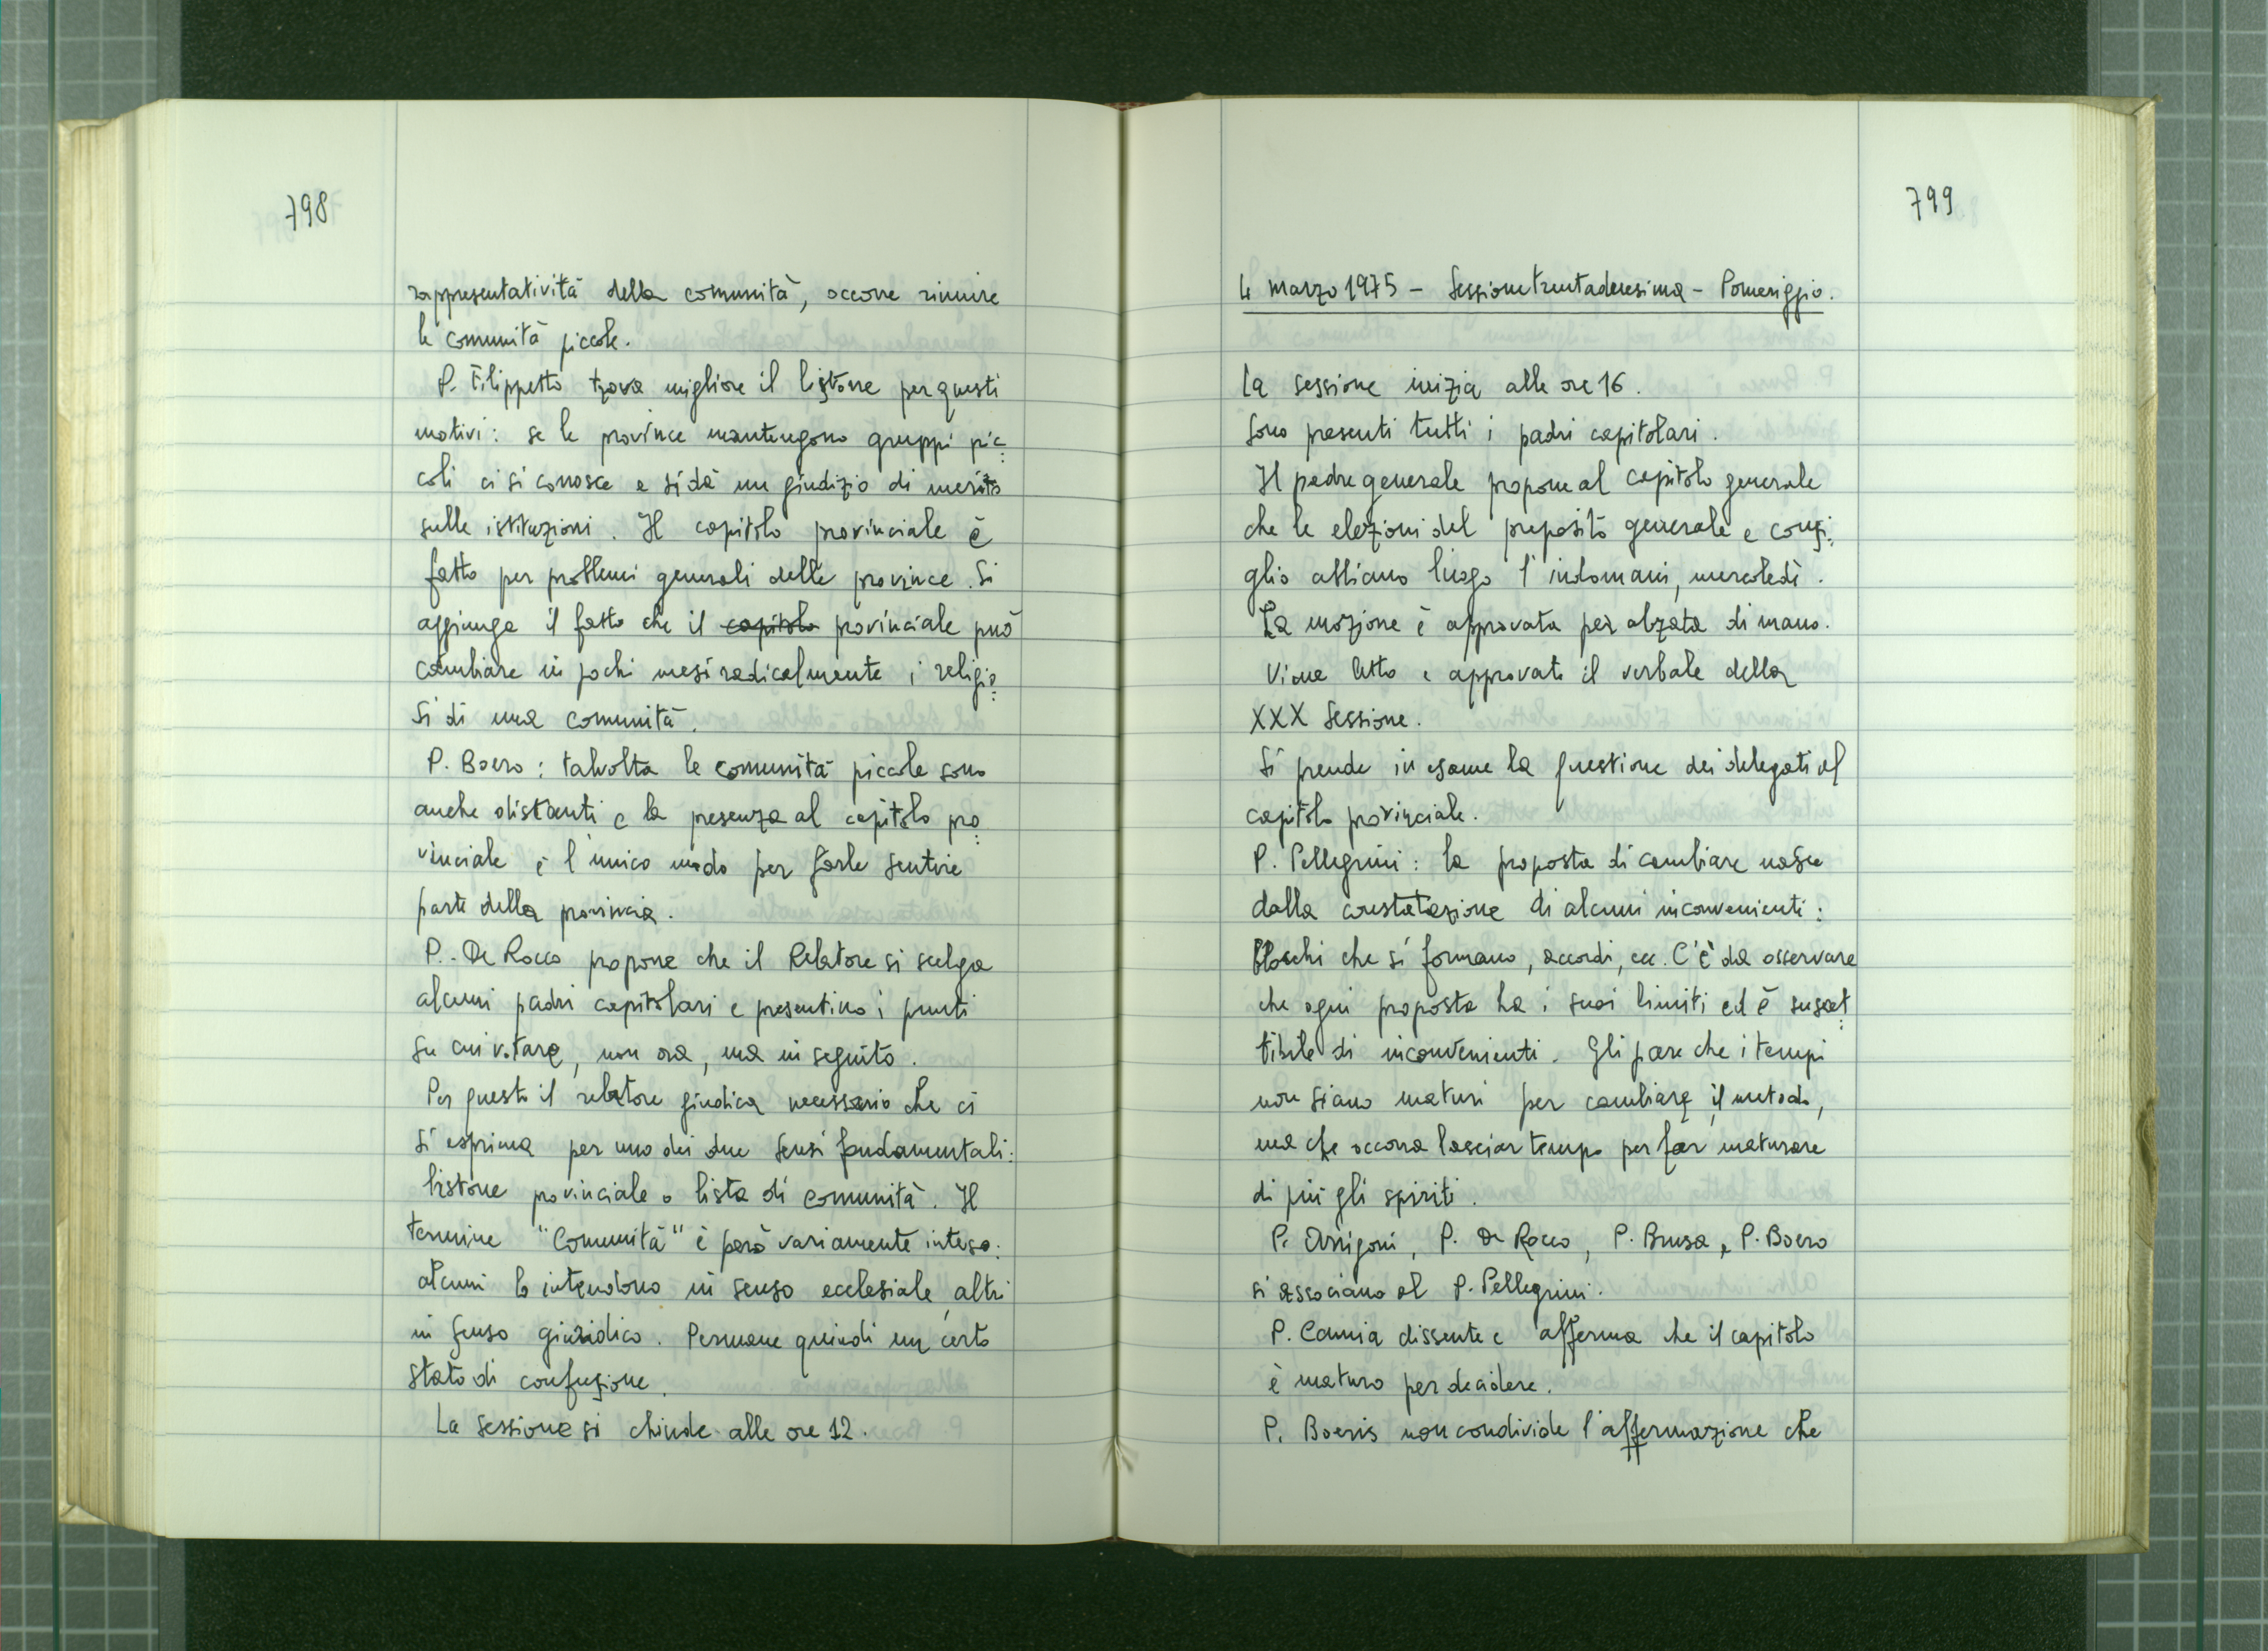 798
rappresentatività della comunità, occorre riunire
le comunità piccole.
P. Filippetto trova migliore il listone per questi
motivi: se le province mantengono gruppi pic=
coli ci si conosce e si dà un giudizio di merito
sulle istituzioni. Il capitolo provinciale è
fatto per problemi generali delle province. Si
aggiunga il fatto che il capitolo provinciale può
cambiare in pochi mesi radicalmente i religio=
si di una comunità.
P. Boero: talvolta le comunità piccole sono
anche distanti e la presenza al capitolo pro=
vinciale è l'unico modo per farle sentire
parte della provincia.
P. De Rocco propone che il Relatore si scelga
alcuni padri capitolari e presentino i punti
su cui votare, non ora, ma in seguito.
Per questo il relatore giudica necessario che ci
si esprima per uno dei due sensi fondamentali:
listone provinciale o lista di comunità. Il
termine "Comunità" è però variamente inteso:
alcuni lo intendono in senso ecclesiale, altri
in senso giuridico. Permane quindi un certo
stato di confusione.
La sessione si chiude alle ore 12.
799
4 marzo 1975 - Sessione trentaduesima - Pomeriggio.
La sessione inizia alle ore 16.
Sono presenti tutti i padri capitolari.
Il padre generale propone al capitolo generale
che le elezioni del preposito generale e consi=
glio abbiano luogo l'indomani, mercoledì.
La mozione è approvata per alzata di mano.
Viene letto e approvato il verbale della
XXX Sessione.
Si prende in esame la questione dei delegati al
capitolo provinciale.
P. Pellegrini: la proposta di cambiare nasce
dalla constatazione di alcuni inconvenienti:
blocchi che si formano, accordi, ecc. C'è da osservare
che ogni proposta ha i suoi limiti ed è suscet=
tibile di inconvenienti. Gli pare che i tempi
non siano maturi per cambiare il metodo,
ma che occorra lasciar tempo per far maturare
di più gli spiriti.
P. Arrigoni, P. De Rocco, P. Brusa, P. Boero
si associano al P. Pellegrini.
P. Camia dissente e afferma che il capitolo
è maturo per decidere.
P. Boeris non condivide l'affermazione che